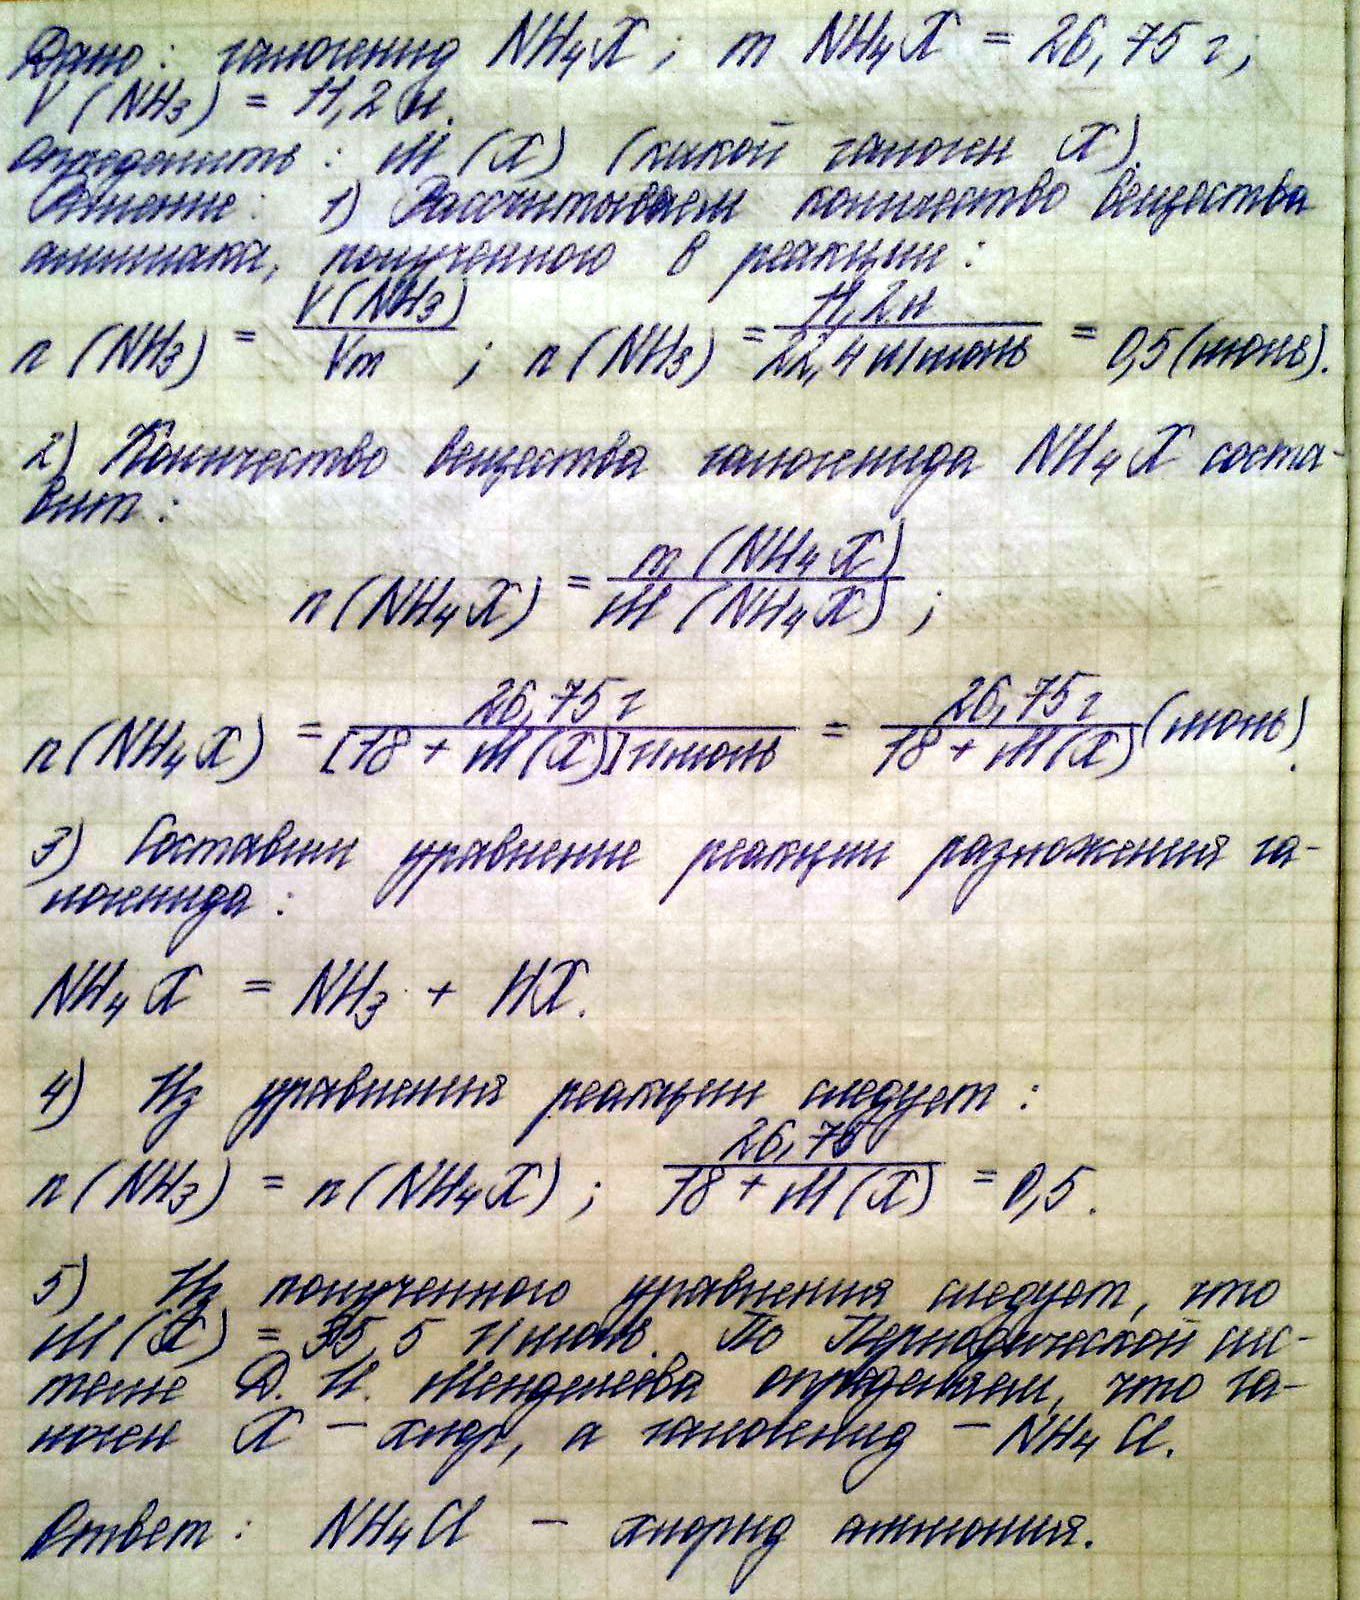 Дано: галогенид NH₄X; m NH₄X = 26,75 г;
V(NH₃) = 11,2 л.
Определить: M(X) (какой галоген X).
Решение: 1) Рассчитываем количество вещества
аммиака, полученного в реакции:
n(NH₃) = V(NH₃)/Vm; n(NH₃) = 11,2 л/22,4 л/моль = 0,5 (моль).
2) Количество вещества галогенида NH₄X соста-
вит:
n(NH₄X) = m(NH₄X)/M(NH₄X);
n(NH₄X) = 26,75 г/[18 + M(X)] г/моль = 26,75 г/18 + M(X) (моль).
3) Составим уравнение реакции разложения га-
логенида:
NH₄X = NH₃ + HX.
4) Из уравнения реакции следует:
n(NH₃) = n(NH₄X); 26,75/18 + M(X) = 0,5.
5) Из полученного уравнения следует, что
M(X) = 35,5 г/моль. По Периодической сис-
теме Д. И. Менделеева определяем, что га-
логен X – хлор, а галогенид – NH₄Cl.
Ответ: NH₄Cl – хлорид аммония.